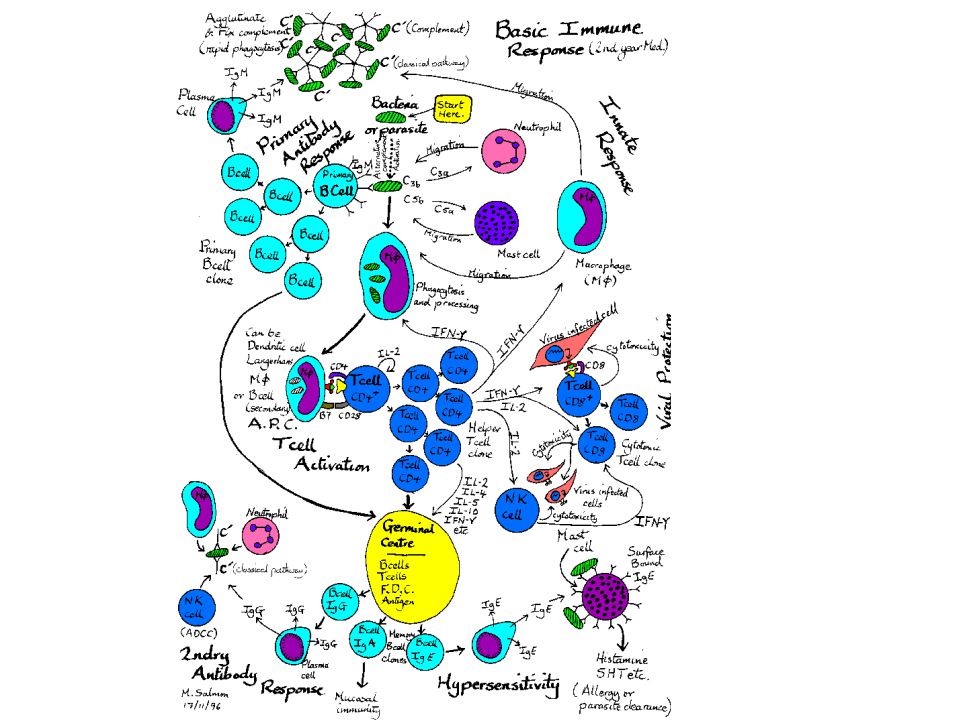 Basic Immune
Response (2nd year Med.)
Agglutinate
& Fix complement
(rapid phagocytosis)
C'
C'
C'
C'
C'
C'
C' (Complement)
C' (classical pathway)
C'
IgM
IgM
IgM
Plasma
Cell
Primary
Antibody
Response
Bacteria
or parasite
Start
Here.
Alternative
complement
pathway
Activation
Migration
Neutrophil
C3a
C3b
C5b
C5a
Migration
Mast cell
Migration
Innate
Response
MΦ
Macrophage
(MΦ)
Migration
IgM
Primary
B Cell
Bcell
Bcell
Bcell
Bcell
Bcell
Bcell
Primary
Bcell
clone
MΦ
Phagocytosis
and processing
IFN-γ
IFN-γ
Can be
Dendritic cell
Langerhans
MΦ
or Bcell
(secondary)
A.P.C.
MΦ
CD4
B7
CD28
IL-2
Tcell
CD4+
Tcell
CD4
Tcell
CD4
Tcell
CD4
Tcell
CD4
Tcell
CD4
Tcell
CD4
Helper
Tcell
clone
Tcell
Activation
IFN-γ
IL-2
IL-2
Virus infected cell
cytotoxicity
CD8
Tcell
CD8+
Tcell
CD8
Tcell
CD8
Cytotoxic
Tcell clone
Viral Protection
Cytotoxicity
Virus infected
cells
cytotoxicity
NK
cell
IFN-γ
IL-2
IL-4
IL-5
IL-10
IFN-γ
etc
Germinal
Centre
Bcells
Tcells
F.D.C.
Antigen
MΦ
Neutrophil
C'
C' (classical pathway)
NK
cell
(ADCC)
IgG
IgG
IgG
Plasma
cell
Bcell
IgG
Bcell
IgA
Memory
Bcell
clones
Bcell
IgE
Mucosal
immunity
2ndry
Antibody
Response
M. Salmon
17/11/96
IgE
IgE
IgE
Hypersensitivity
Mast
cell
Surface
Bound
IgE
Histamine
5HT etc.
(Allergy or
parasite clearance)